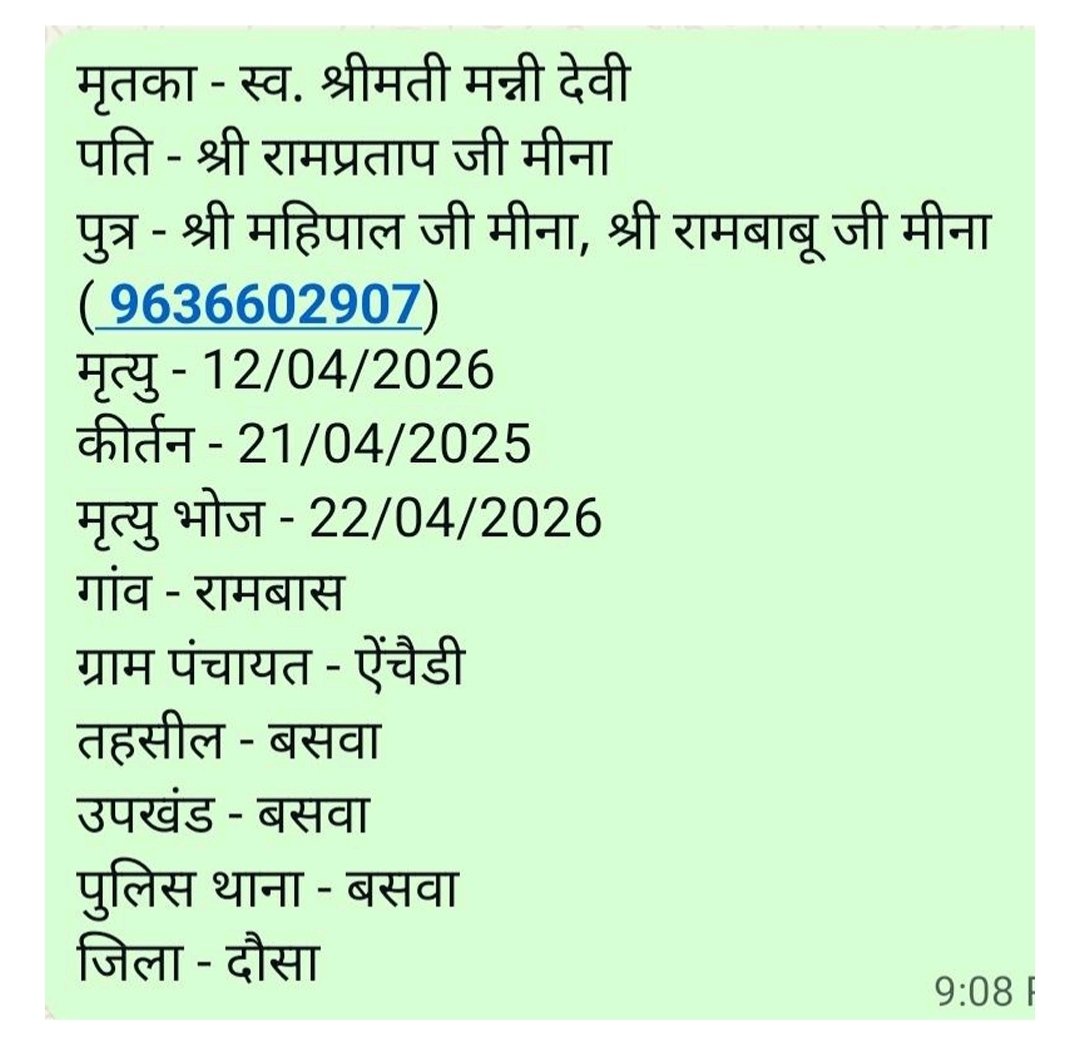 मृतका - स्व. श्रीमती मन्नी देवी
पति - श्री रामप्रताप जी मीना
पुत्र - श्री महिपाल जी मीना, श्री रामबाबू जी मीना
( 9636602907)
मृत्यु - 12/04/2026
कीर्तन - 21/04/2025
मृत्यु भोज - 22/04/2026
गांव - रामबास
ग्राम पंचायत - ऐंचैडी
तहसील - बसवा
उपखंड - बसवा
पुलिस थाना - बसवा
जिला - दौसा
9:08